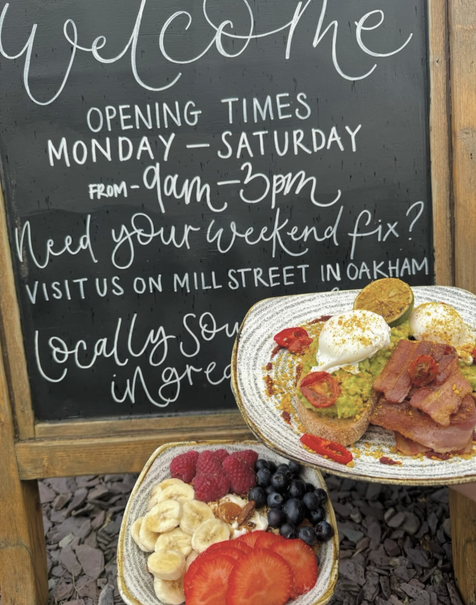 Welcome
OPENING TIMES
MONDAY – SATURDAY
FROM - 9am - 3pm
Need your weekend fix?
VISIT US ON MILL STREET IN OAKHAM
Locally